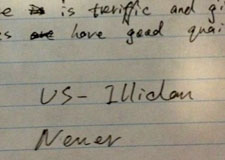 is teriffic and gi
es are have good quai
US- Illidan
Nener